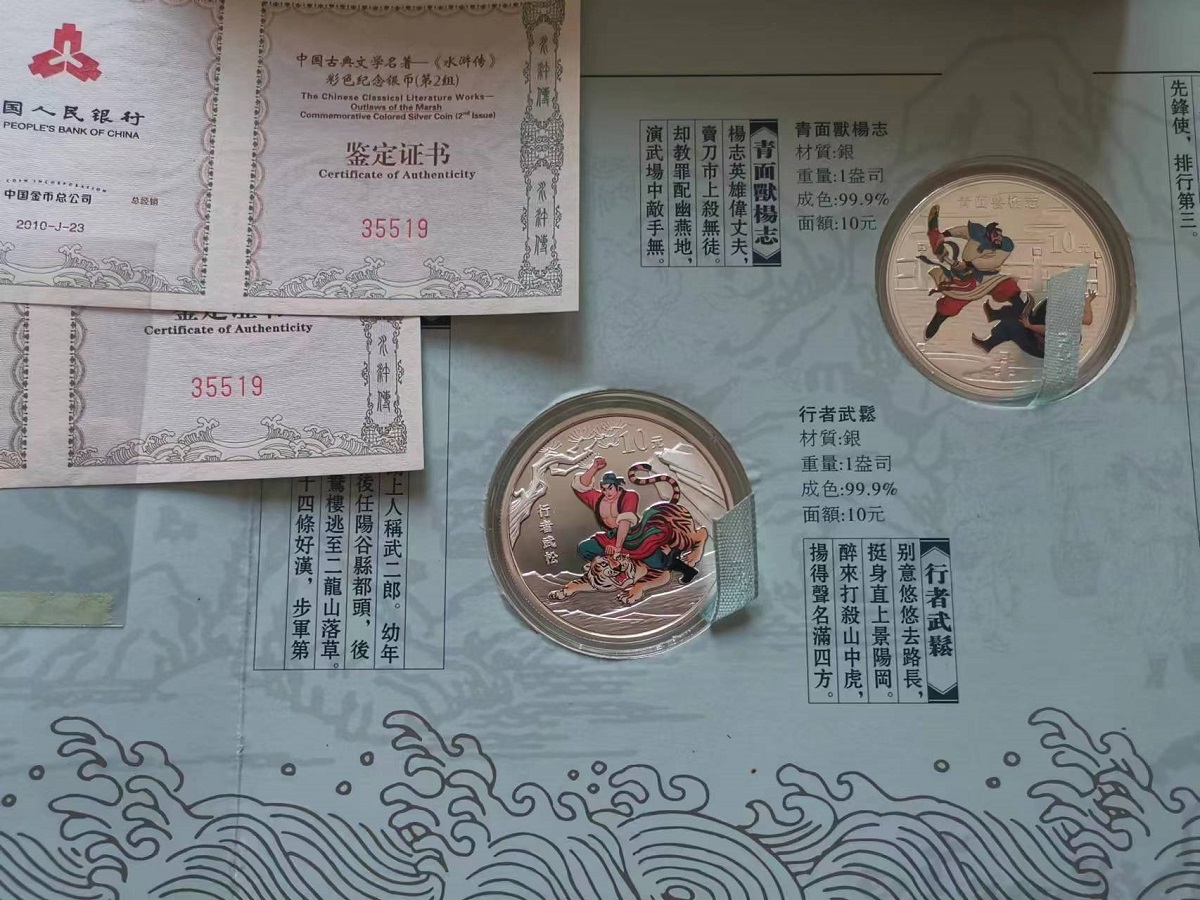 国人民银行
PEOPLE'S BANK OF CHINA
COIN INCORPORATION
中国金币总公司
总经销
2010-J-23
中国古典文学名著—《水浒传》
彩色纪念银币(第2组)
The Chinese Classical Literature Works—
Outlaws of the Marsh
Commemorative Colored Silver Coin (2nd Issue)
鉴定证书
Certificate of Authenticity
35519
水浒傳
水浒傳
鉴定证书
Certificate of Authenticity
35519
水浒傳
上人稱武二郎。幼年
後任陽谷縣都頭，後
鴛樓逃至二龍山落草。
十四條好漢，步軍第
青面獸楊志
楊志英雄偉丈夫，
賣刀市上殺無徒。
却教罪配幽燕地，
演武場中敵手無。
青面獸楊志
材質:銀
重量:1盎司
成色:99.9%
面額:10元
青面兽杨志
10元
先鋒使，排行第三。
10元
行者武松
行者武鬆
材質:銀
重量:1盎司
成色:99.9%
面額:10元
行者武鬆
别意悠悠去路長，
挺身直上景陽岡。
醉來打殺山中虎，
揚得聲名滿四方。